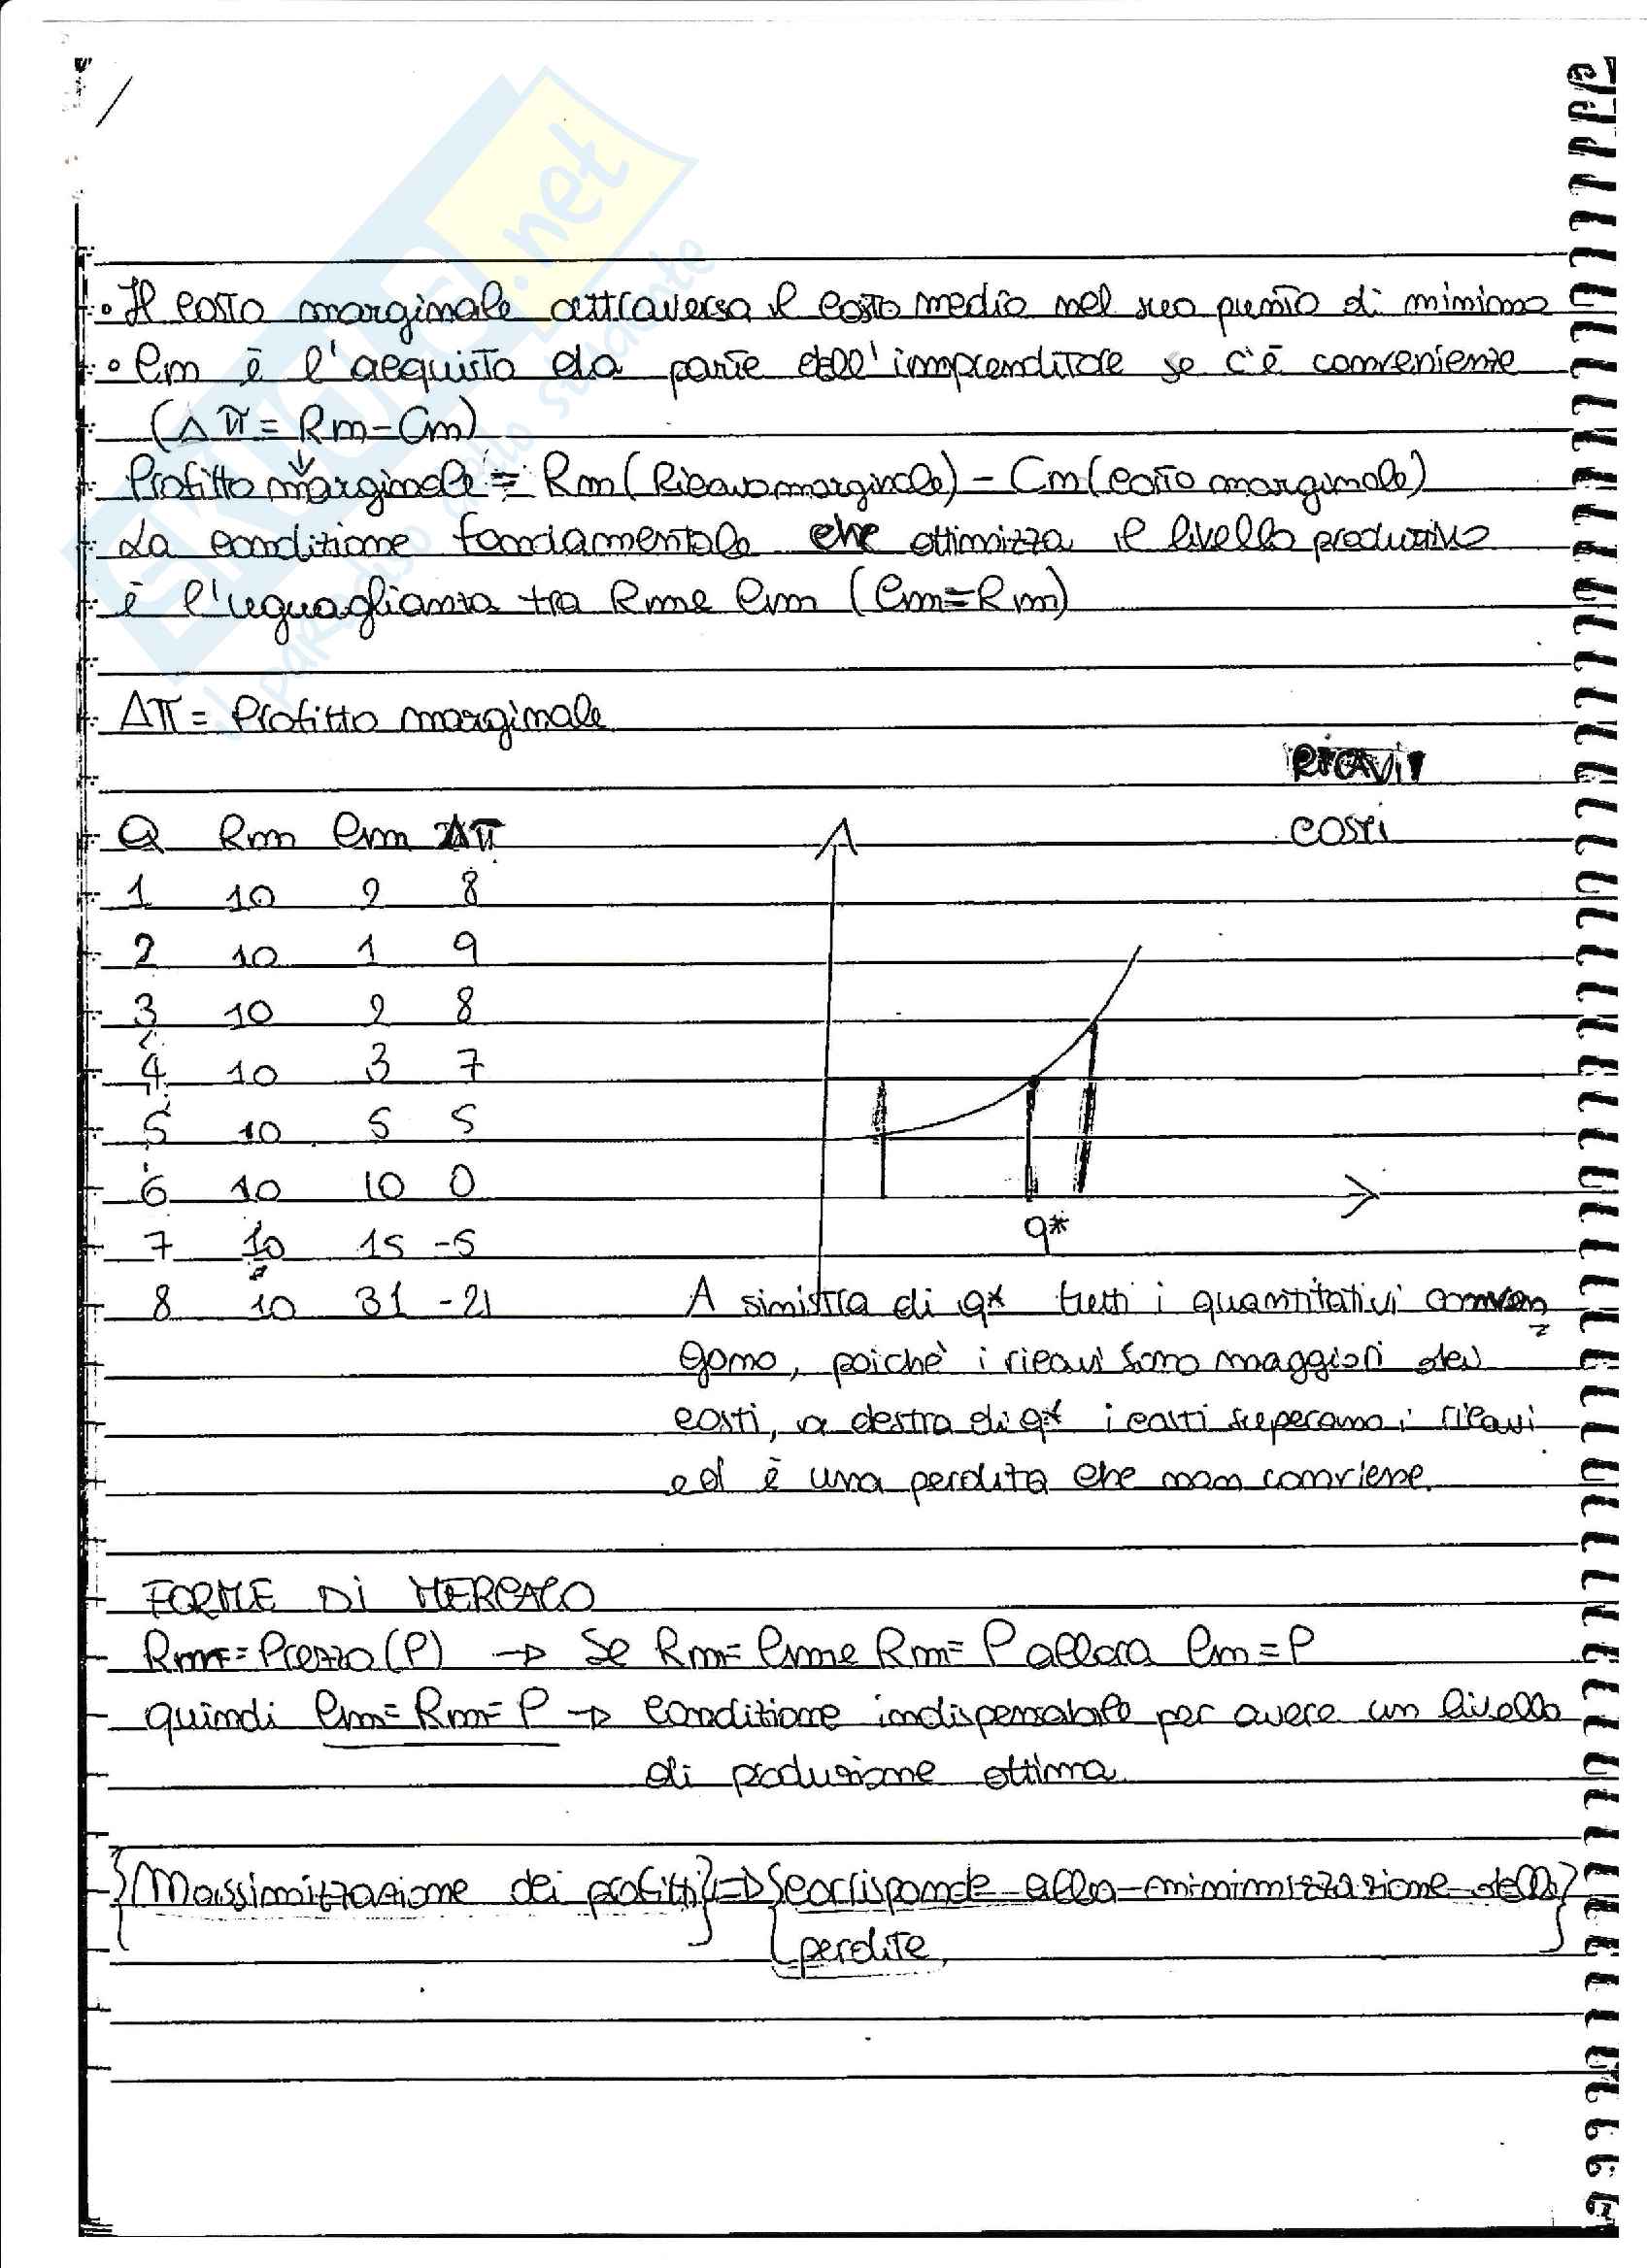 SKUOLA.net
il paradiso dello studente
• Il costo marginale attraversa il costo medio nel suo punto di minimo
• Cm è l'acquisto da parte dell'imprenditore se c'è convenienza
(Δπ = Rm - Cm)
Profitto marginale = Rm (Ricavo marginale) - Cm (costo marginale)
La condizione fondamentale che ottimizza il livello produttivo
è l'uguaglianza tra Rm e Cm (Cm = Rm)
Δπ = Profitto marginale
RICAVI
COSTI
Q Rm Cm Δπ
1 10 2 8
2 10 1 9
3 10 2 8
4 10 3 7
5 10 5 5
6 10 10 0
7 10 15 -5
8 10 31 -21
q*
A sinistra di q* tutti i quantitativi conven
gono, poichè i ricavi sono maggiori dei
costi, a destra di q* i costi superano i ricavi
ed è una perdita che non conviene.
FORME DI MERCATO
Rm = Prezzo (P) → Se Rm = Cm e Rm = P allora Cm = P
quindi Cm = Rm = P → condizione indispensabile per avere un livello
di produzione ottima
{Massimizzazione dei profitti} => {corrisponde alla minimizzazione delle
perdite}